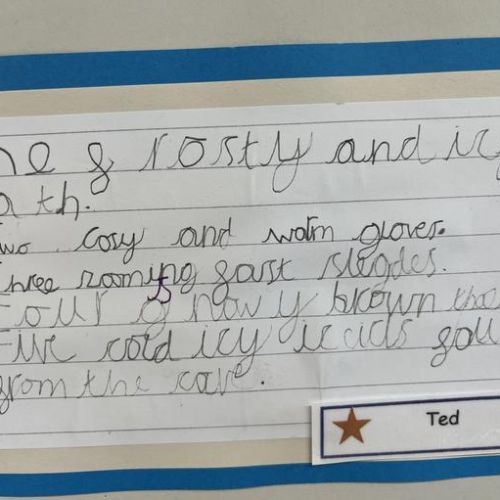 ne grosty and icy
ath.
wo cosy and watm gloves.
hree zooming gast slegdes.
Four snowy brown the
Five cold icy icicls gall
grom the cave.
Ted